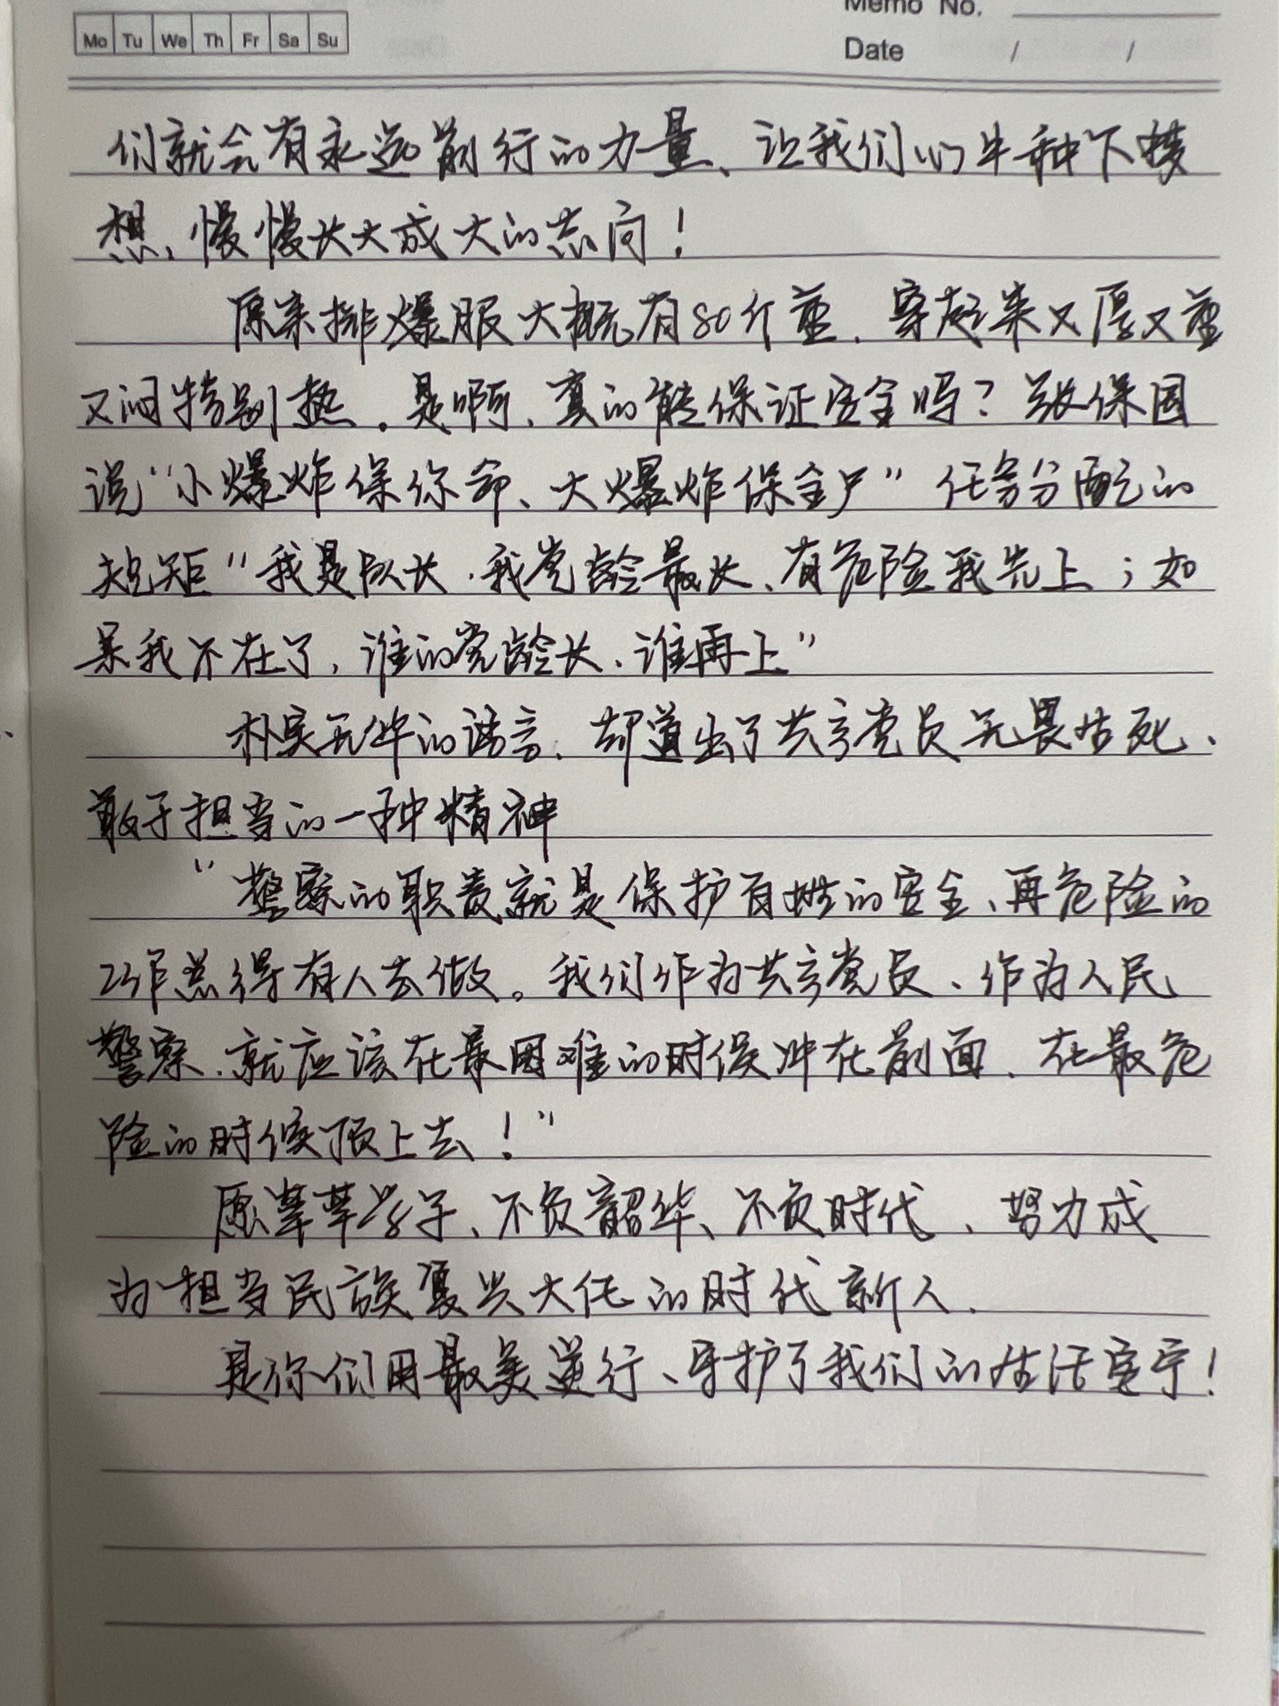 Memo No.
Mo Tu We Th Fr Sa Su
Date / /
们就会有永远前行的力量、让我们心中种下梦
想，慢慢长大成大的志向！
原来排爆服大概有80斤重，穿起来又厚又重
又闷特别热。是啊，真的能保证安全吗？张保国
说“小爆炸保你命、大爆炸保全尸”任务分配的
规矩“我是队长，我党龄最长、有危险我先上；如
果我不在了，谁的党龄长、谁再上”
朴实无华的语言，却道出了共产党员无畏生死、
敢于担当的一种精神
“警察的职责就是保护百姓的安全、再危险的
工作总得有人去做。我们作为共产党员、作为人民
警察，就应该在最困难的时候冲在前面，在最危
险的时候顶上去！”
愿莘莘学子、不负韶华、不负时代，努力成
为担当民族复兴大任的时代新人.
是你们用最美逆行、守护了我们的生活安宁！